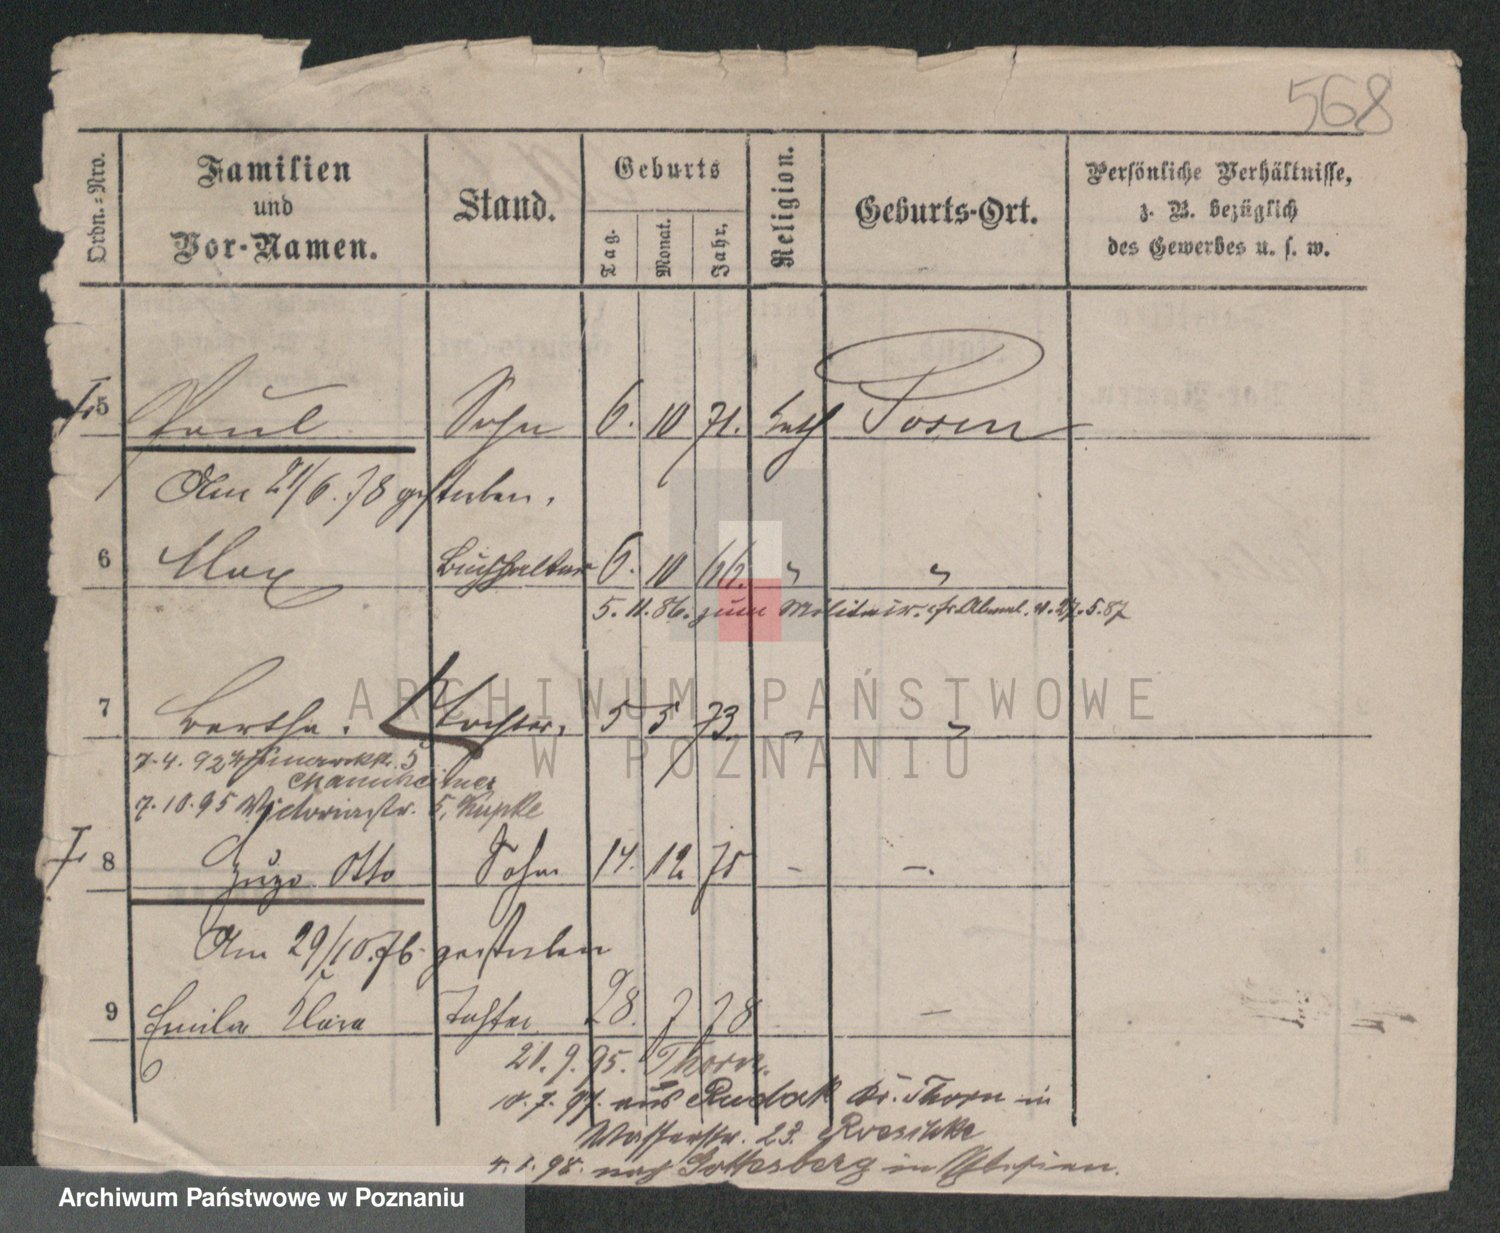 568
Ordn.-Nro.
Familien und Vor-Namen.
Stand.
Geburts
Tag.
Monat.
Jahr,
Religion.
Geburts-Ort.
Persönliche Verhältnisse,
z. B. bezüglich
des Gewerbes u. s. w.
5 Paul Sohn 6. 10 71. Posen
Am 21/6.78 gestorben.
6 Max Buchhalter 6. 10 66. " "
5.11.86. zum Militair. 27.5.87
7 Bertha. Tochter. 5 5 73. " "
7.4.92 5
7.10.95 Victoriastr. 5, Kupke
8 Hugo Otto Sohn 14. 12 75 – –.
Am 29/10.76 gestorben
9 Emilie Clara Tochter 28. 7 78 –
21.9.95. Thorn.
10.7.97. aus Rudak Kr. Thorn in
Wasserstr. 23.
4.1.98. nach Gottesberg in Schlesien.
ARCHIWUM PAŃSTWOWE
W POZNANIU
Archiwum Państwowe w Poznaniu